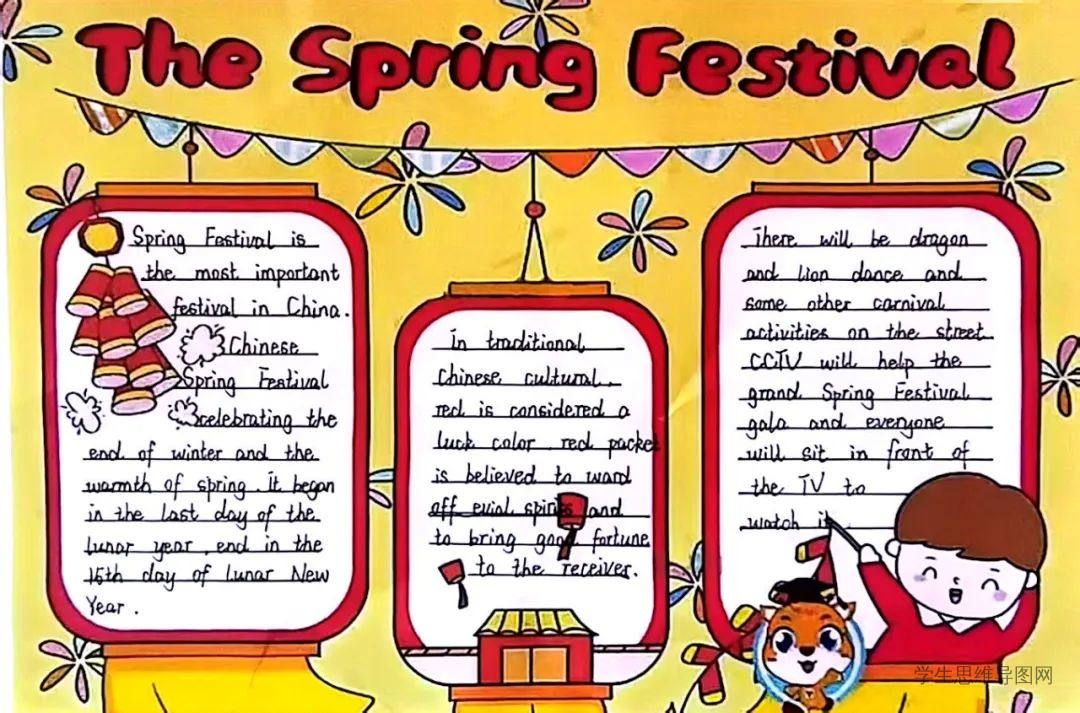 The Spring Festival
Spring Festival is
the most important
festival in China.
Chinese
Spring Festival
celebrating the
end of winter and the
warmth of spring. It began
in the last day of the
lunar year, end in the
15th day of lunar New
Year.
In traditional
Chinese cultural,
red is considered a
luck color, red packet
is believed to ward
off evial spirits and
to bring good fortune
to the receiver.
There will be dragon
and lion dance and
some other carnival
activities on the street
CCTV will help the
grand Spring Festival
gala and everyone
will sit in front of
the TV to
watch it
学生思维导图网